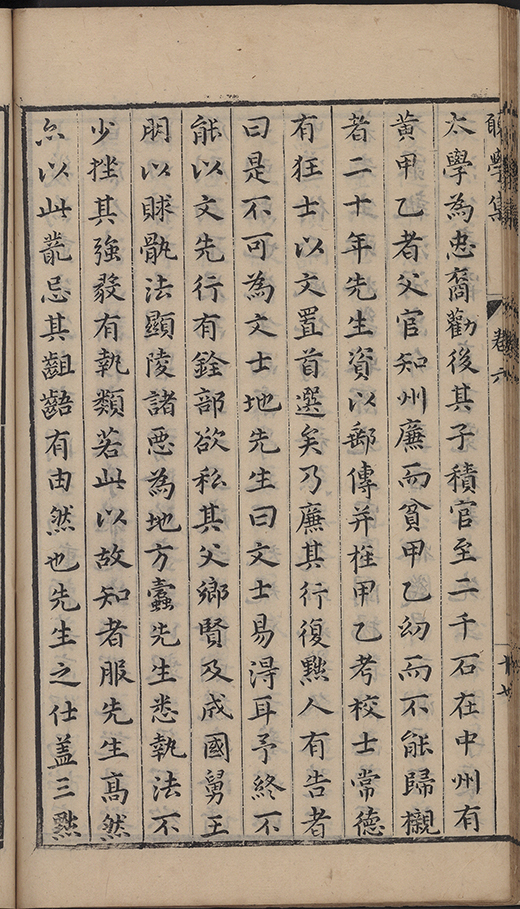 學集
卷六
太學為忠裔勸後其子積官至二千石在中州有
黄甲乙者父官知州廉而貧甲乙幼而不能歸櫬
者二十年先生資以郵傳并柩甲乙考校士常德
有狂士以文置首選矣乃廉其行復黜人有告者
曰是不可為文士地先生曰文士易得耳予終不
能以文先行有銓部欲私其父鄉賢及戚國舅王
朋以賕骫法顯陵諸惡為地方蠹先生悉執法不
少挫其強毅有執類若此以故知者服先生高然
亦以此蘢忌其齟齬有由然也先生之仕盖三黜